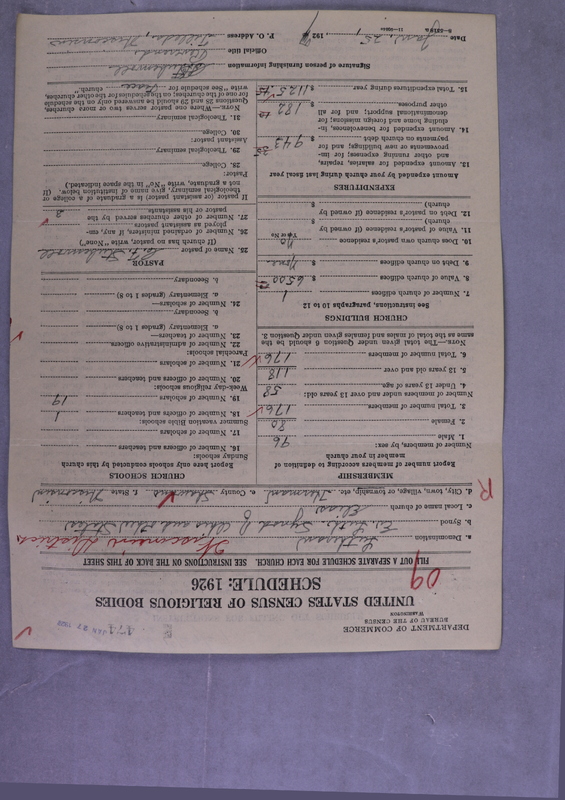 DEPARTMENT OF COMMERCE
BUREAU OF THE CENSUS
WASHINGTON
474
JAN 27 1927
UNITED STATES CENSUS OF RELIGIOUS BODIES
SCHEDULE: 1926
09
FILL OUT A SEPARATE SCHEDULE FOR EACH CHURCH. SEE INSTRUCTIONS ON THE BACK OF THIS SHEET
a. Denomination Lutheran Wisconsin District
b. Synod Ev. Luth. Synod of Ohio and other States
c. Local name of church Elias
d. City, town, village, or township, etc. Herman e. County Shawano f. State Wisconsin
R
MEMBERSHIP
Report number of members according to definition of member in your church
Number of members, by sex:
1. Male 96
2. Female 80
3. Total number of members 176
Number of members under and over 13 years old:
4. Under 13 years of age 58
5. 13 years old and over 118
6. Total number of members 176
Note.—The total given under Question 6 should be the same as the total of males and females given under Question 3.
CHURCH BUILDINGS
See instructions, paragraphs 10 to 12
7. Number of church edifices 1
8. Value of church edifices $ 6500
9. Debt on church edifices $ None
10. Does church own pastor's residence No
Yes or No
11. Value of pastor's residence (if owned by church) $
12. Debt on pastor's residence (if owned by church) $
EXPENDITURES
Amount expended by your church during last fiscal year
13. Amount expended for salaries, repairs, and other running expenses; for improvements or new buildings; and for payments on church debt $ 943
14. Amount expended for benevolences, including home and foreign missions; for denominational support; and for all other purposes $ 182
15. Total expenditures during year $ 1125
CHURCH SCHOOLS
Report here only schools conducted by this church
Sunday schools:
16. Number of officers and teachers
17. Number of scholars
Summer vacation Bible schools:
18. Number of officers and teachers 1
19. Number of scholars 19
Week-day religious schools:
20. Number of officers and teachers
21. Number of scholars
Parochial schools:
22. Number of administrative officers
23. Number of teachers—
a. Elementary (grades 1 to 8)
b. Secondary
24. Number of scholars—
a. Elementary (grades 1 to 8)
b. Secondary
PASTOR
25. Name of pastor
(If church has no pastor, write "None")
26. Number of ordained ministers, if any, employed as assistant pastors
27. Number of other churches served by the pastor or his assistants 2
If pastor or assistant pastor is a graduate of a college or theological seminary, give name of institution below. (If not a graduate, write "No" in the space indicated.)
Pastor:
28. College
29. Theological seminary
Assistant pastor:
30. College
31. Theological seminary
Note.—Where one pastor serves two or more churches, Questions 25 and 26 should be answered only on the schedule for one of the churches; on the schedules for the other churches, write "See schedule for Grace church."
Signature of person furnishing information
Official title Reverend
P. O. Address Tilleda, Wisconsin
Date Jan. 25, 192